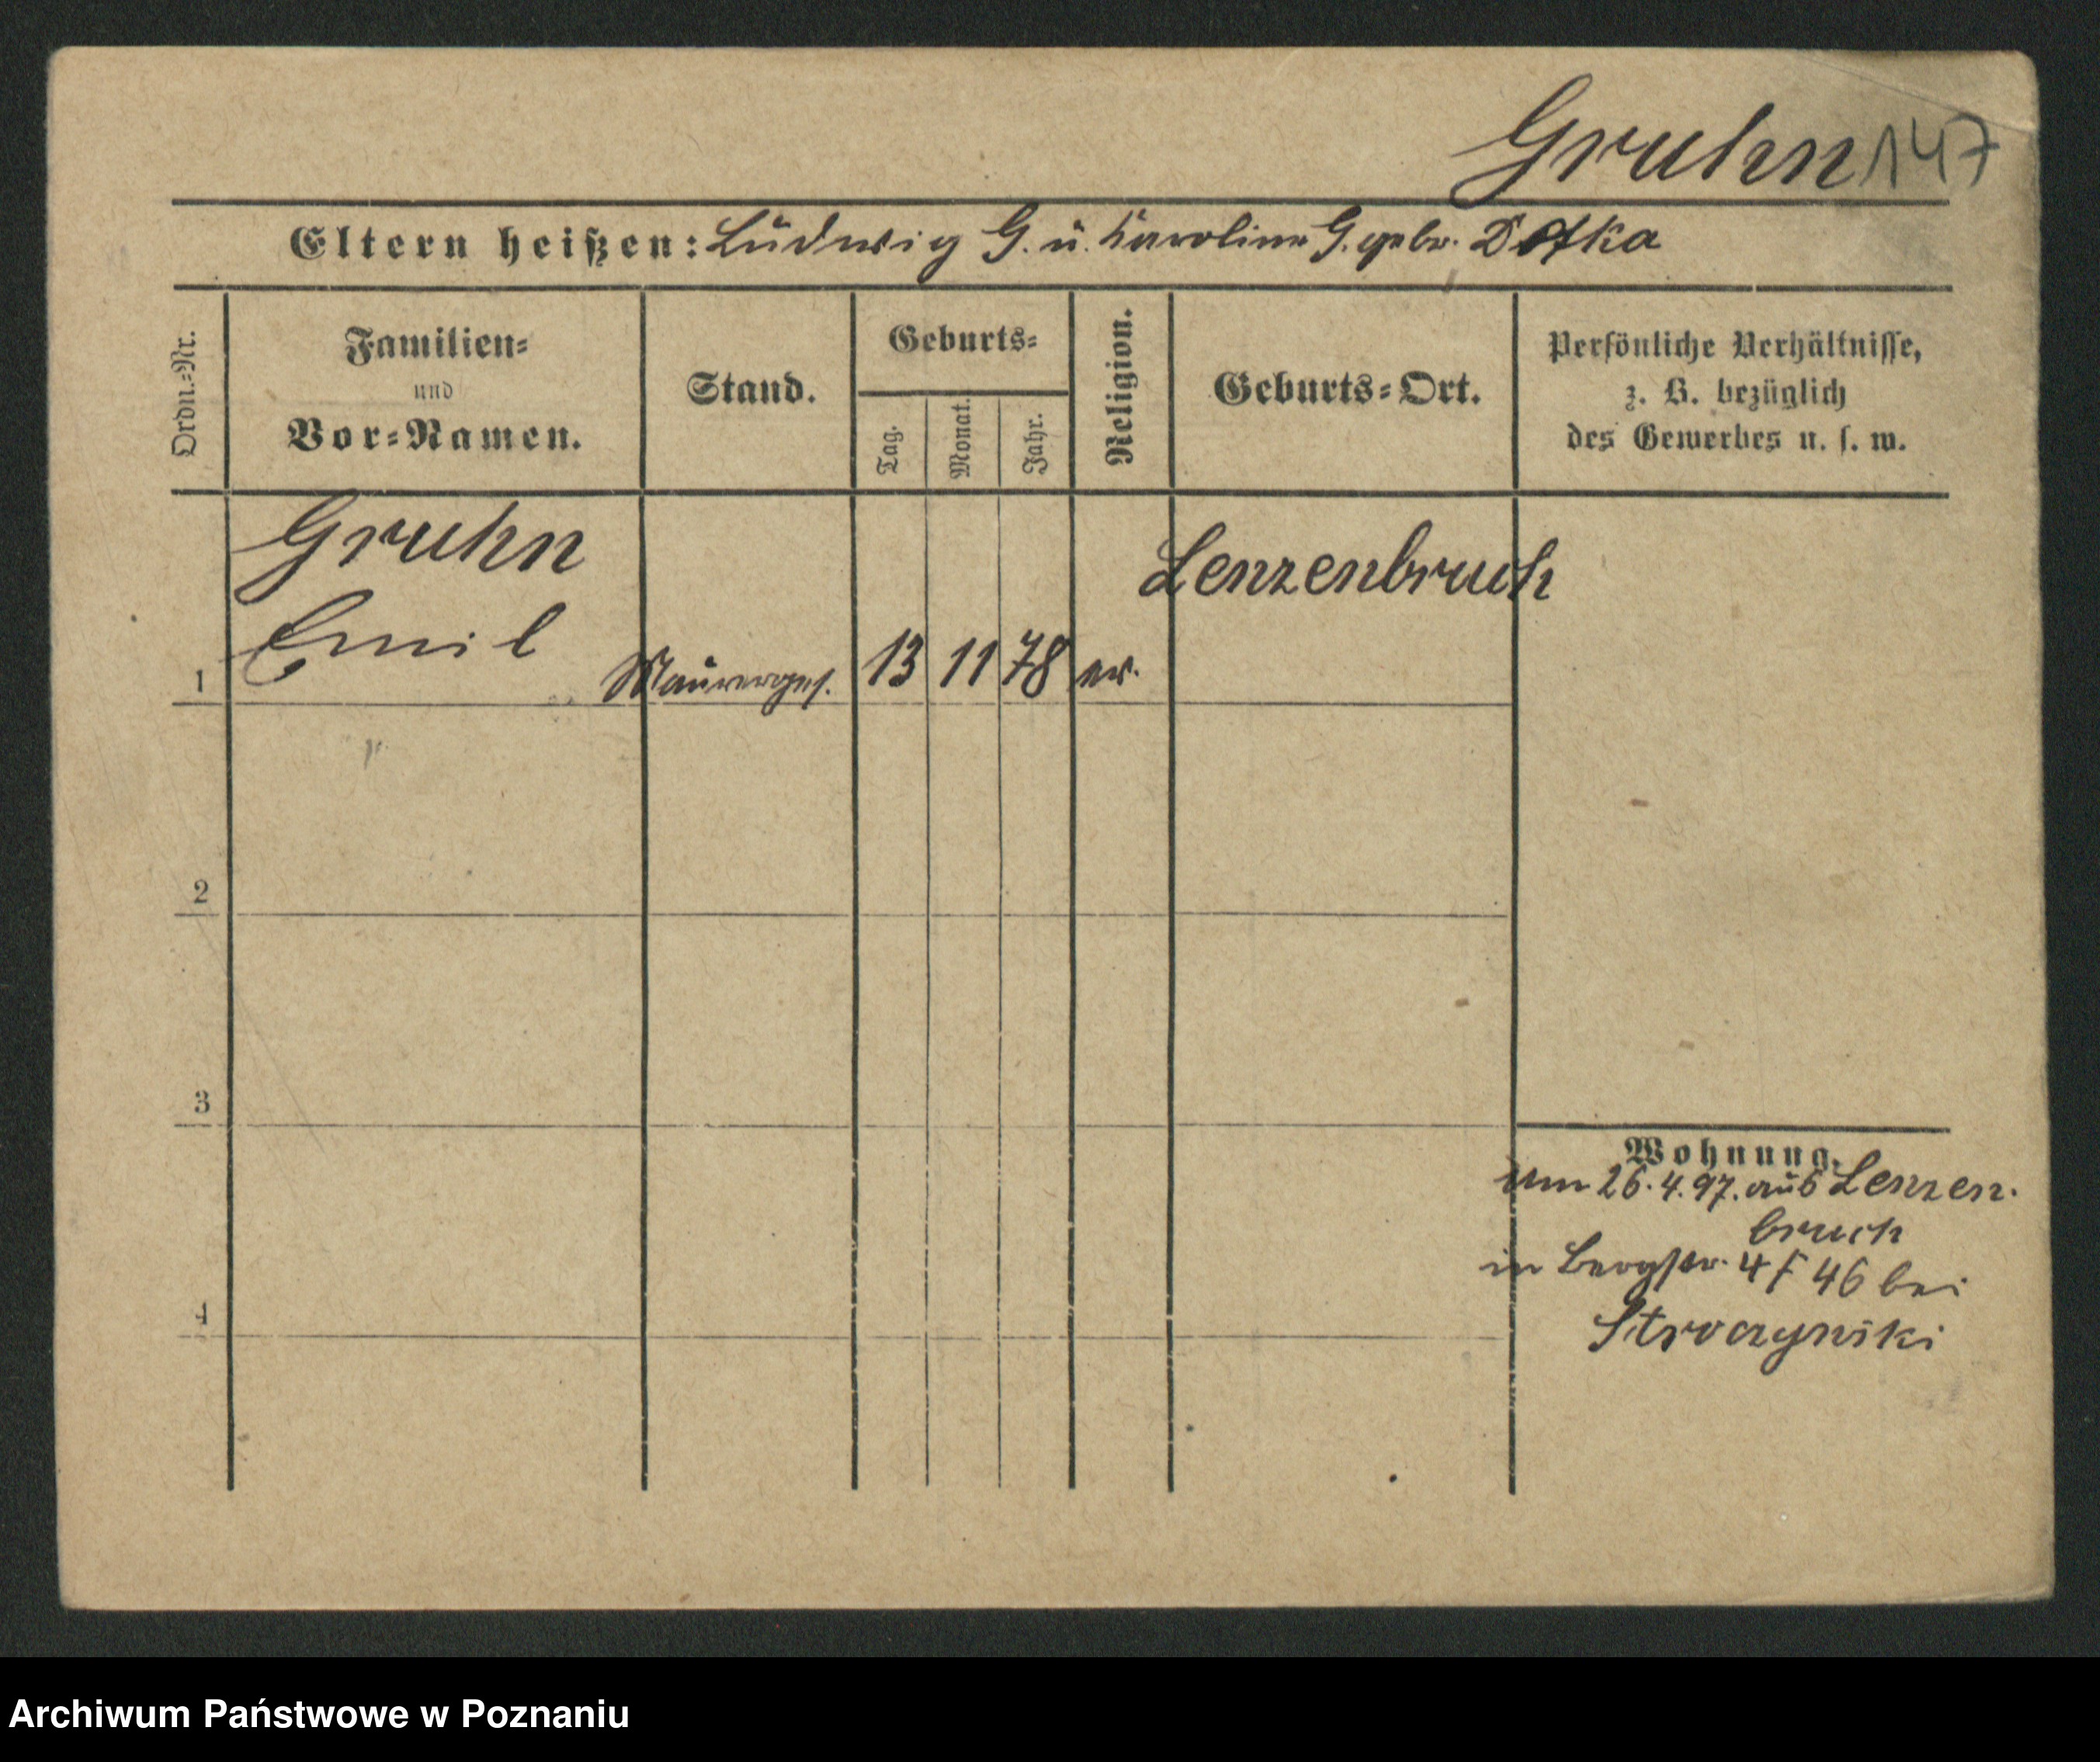 Gruhn 147
Eltern heißen: Ludwig G. u. Karoline G. gebr.
Ordn.-Nr.
Familien-
und
Vor-Namen.
Stand.
Geburts-
Tag.
Monat.
Jahr.
Religion.
Geburts-Ort.
Persönliche Verhältnisse,
z. B. bezüglich
des Gewerbes u. s. w.
Gruhn
Lenzenbruch
Emil
1 Maurerges. 13 11 78 ev.
2
3
Wohnung.
Um 26.4.97. aus Lenzen-
bruch
in Bergstr. 4 f 46 bei
4
Stroczynski
Archiwum Państwowe w Poznaniu